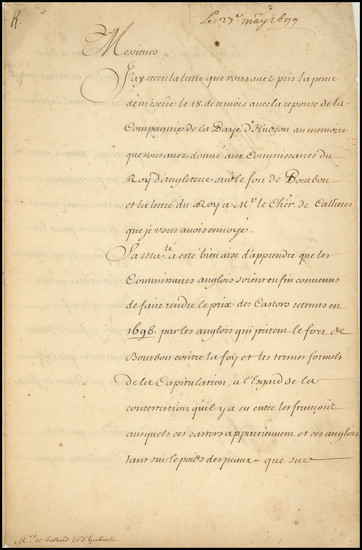 R.
Le 27e may 1699
Messieurs
J'ay receu la lettre que vous avez pris la peine
de m'escrire le 18. de ce mois avec la reponse de la
Compagnie de la Baye d'Hudson au memoire
que vous avez donné aux Commissaires du
Roy d'Angleterre sur le fort de Bourbon
et la lettre du Roy a Mr. le Cher. de Callieres
que je vous avois envoyé.
Sa Ma.té a esté bien aise d'apprendre que les
Commissaires anglois soient enfin convenus
de faire rendre le prix des Castors retenus en
1696 par les anglois qui prirent le fort de
Bourbon contre la foy et les termes formels
de la Capitulation, a l'Esgard de la
contestation qu'il y a eu entre les françois
ausquels ces castors appartiennent et ces anglois
tant sur le poids des peaux que sur
Mrs. de Tallard et d'Herbault